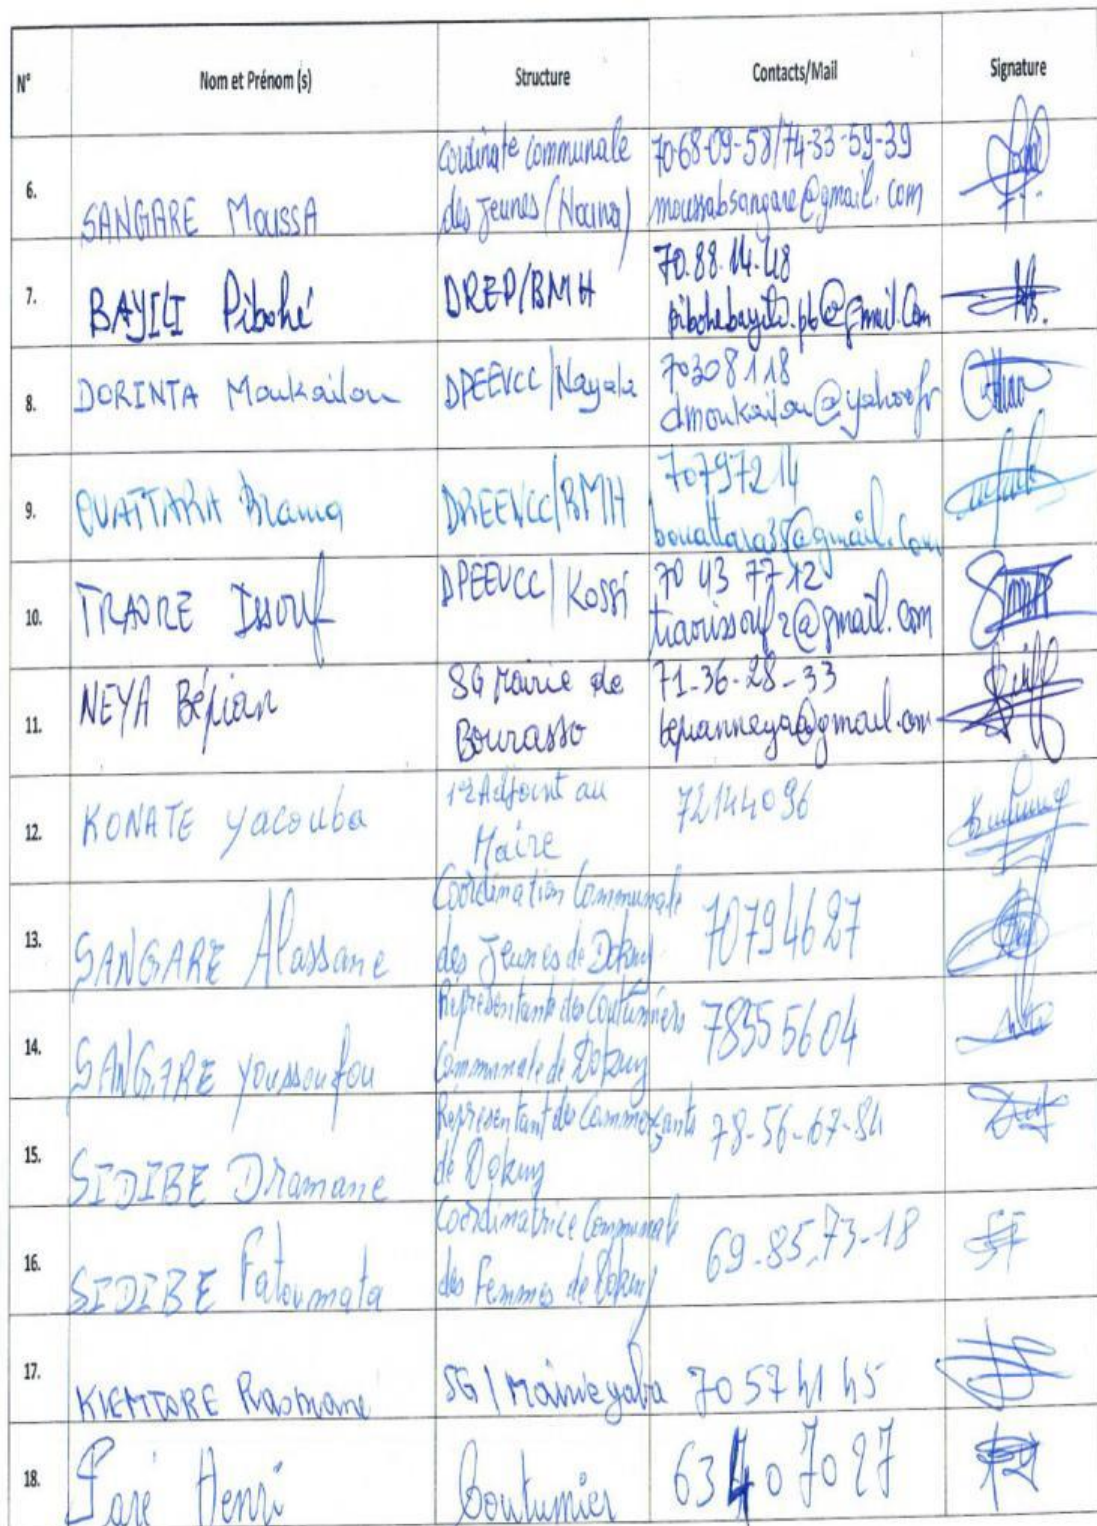 N° Nom et Prénom (s) Structure Contacts/Mail Signature
6. SANGARE MoussA
Coordinate Communale
des Jeunes (Nouna)
70-68-09-58/74-33-59-39
moussabsangare@gmail.com
7. BAYILI Pibohé DREP/BMH
70.88.14.48
pibohebayili.pb@gmail.Com
8. DORINTA Moukailou DPEEVCC/Nayala
70308118
dmoukailou@yahoo.fr
9. OUATTARA Brama DREEVCC/BMH
70797214
bouattara35@gmail.com
10. TRAORE Issouf DPEEVCC/Kossi
70 43 77 12
traorissouf2@gmail.com
11. NEYA Bépian
SG Mairie de
Bourasso
71-36-28-33
bepianneya@gmail.com
12. KONATE Yacouba
1er Adjoint au
Maire
72144096
13. SANGARE Alassane
Coordination Communale
des Jeunes de Dokuy
70794627
14. SANGARE Youssoufou
Représentant des Coutumiers
Communale de Dokuy
78555604
15. SIDIBE Dramane
Représentant des Commerçants
de Dokuy
78-56-67-84
16. SIDIBE Fatoumata
Coordinatrice Communale
des Femmes de Dokuy
69-85-73-18
17. KIEMTORE Rasmané SG/Mairie yaba 70 57 41 45
18. Paré Henri Coutumier 63 40 70 27